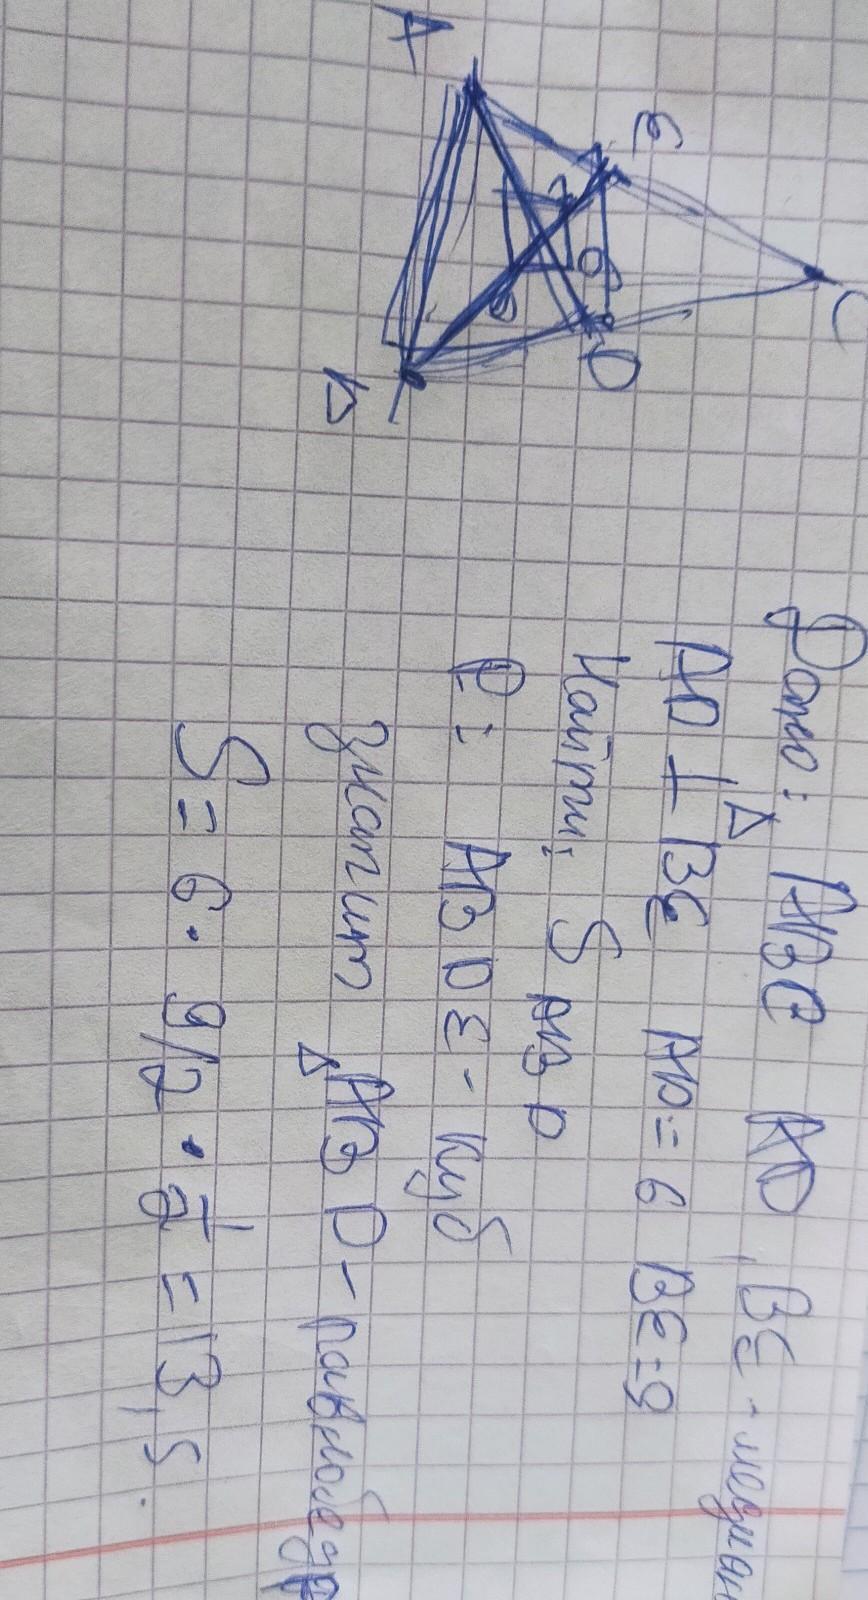 A
E
C
O
D
B
Дано: △ ABC AD, BE - медиан
AD ⊥ BE AD = 6 BE = 9
Найти: S ABD
Р: ABDE - куб
значит △ ABD - равнобедр
S = 6 · 9/2 · 1/2 = 13,5.